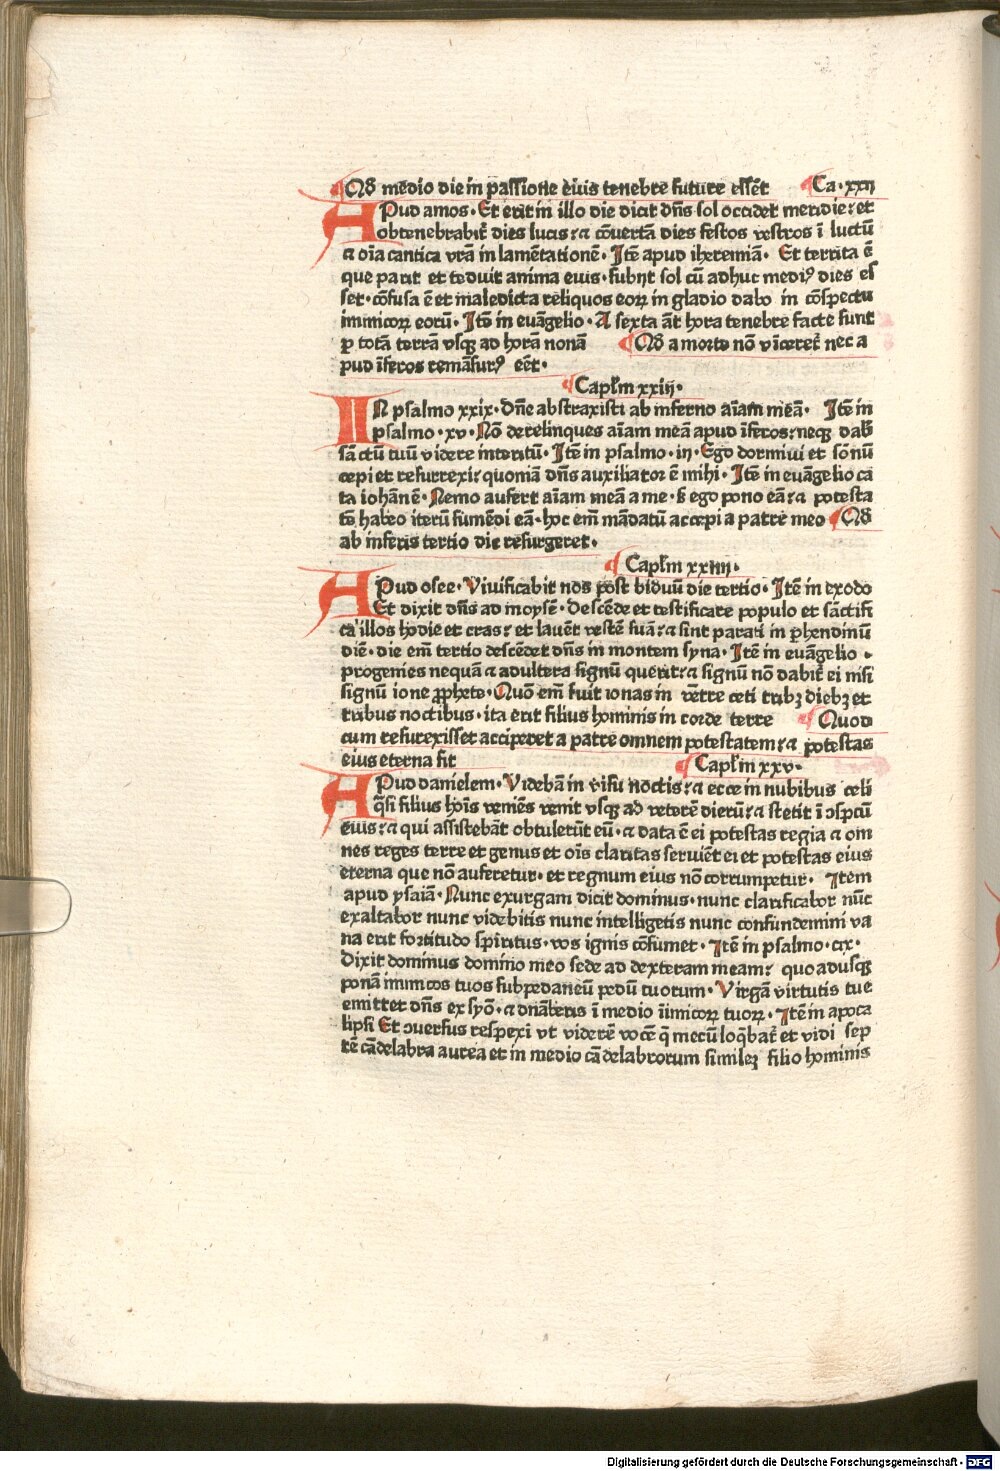 Qđ medio die in passione eius tenebre future essēt Ca·xxii
APud amos· Et erit in illo die dicit dn̄s sol occidet meridie: et
obtenebrabit̄ dies lucis: ⁊ cōuertā dies festos vestros ī luctū
⁊ oīa cantica vrā in lamētationē· Itē apud iheremiā· Et territa ē
que parit et teduit anima eius· subijt sol cū adhuc mediꝰ dies es
set· cōfusa ē et maledicta reliquos eoꝝ in gladio dabo in cōspectu
inimicoꝝ eorū· Itē in euāgelio· A sexta āt hora tenebre facte sunt
ꝑ totā terrā vsqꝫ ad horā nonā Qđ a morte nō vīceret̄ nec a
pud īferos remāsurꝰ eēt·
Capl̄m xxiij·
IN psalmo xxix· dn̄e abstraxisti ab inferno aīam meā· Itē in
psalmo·xv· Nō derelinques aīam meā apud īferos: neqꝫ dab̄
sāctū tuū videre interitū· Itē in psalmo·iij· Ego dormiui et sōnū
cepi et resurrexi: quoniā dn̄s auxiliator ē mihi· Itē in euāgelio ca
ta iohānē· Nemo aufert aīam meā a me· s̄ ego pono eā: ⁊ potesta
tē habeo iterū sumēdi eā· hoc em̄ mādatū accepi a patre meo Qđ
ab inferis tertio die resurgeret·
Capl̄m xxiiij·
APud osee· Viuificabit nos post biduū die tertio· Itē in exodo
Et dixit dn̄s ad moysē· descēde et testificare populo et sāctifi
ca illos hodie et cras: et lauēt vestē suā: ⁊ sint parati in ꝑhendinū
diē· die em̄ tertio descēdet dn̄s in montem syna· Itē in euāgelio·
progenies nequā ⁊ adultera signū querit: ⁊ signū nō dabit̄ ei nisi
signū ione ꝓphete· Quō em̄ fuit ionas in vētre ceti tribꝫ diebꝫ et
tribus noctibus· ita erit filius hominis in corde terre Quod
cum resurexisset acciperet a patre omnem potestatem: ⁊ potestas
eius eterna sit Capl̄m xxv·
APud danielem· Videbā in visu noctis: ⁊ ecce in nubibus celi
q̄si filius hoīs veniēs venit vsqꝫ ad veterē dierū: ⁊ stetit ī ↄspcū
eius: ⁊ qui assistebāt obtulerūt eū· ⁊ data ē ei potestas regia ⁊ om
nes reges terre et genus et oīs claritas seruiēt ei et potestas eius
eterna que nō auferetur· et regnum eius nō corrumpetur· Item
apud ysaiā· Nunc exurgam dicit dominus· nunc clarificabor nūc
exaltabor nunc videbitis nunc intelligetis nunc confundemini va
na erit fortitudo spiritus· vos ignis cōsumet· Itē in psalmo·cix·
Dixit dominus domino meo sede ad dexteram meam: quo adusqꝫ
ponā inimicos tuos subpedaneū pedū tuorum· Virgā virtutis tue
emittet dn̄s ex syō· ⁊ dnāberis ī medio īimicoꝝ tuoꝝ· Itē in apoca
lipsi Et ↄuersus respexi vt viderē vocē q̄ mecū loq̄bat̄ et vidi sep
tē cādelabra aurea et in medio cādelabrorum simileꝫ filio hominis
Digitalisierung gefördert durch die Deutsche Forschungsgemeinschaft · DFG